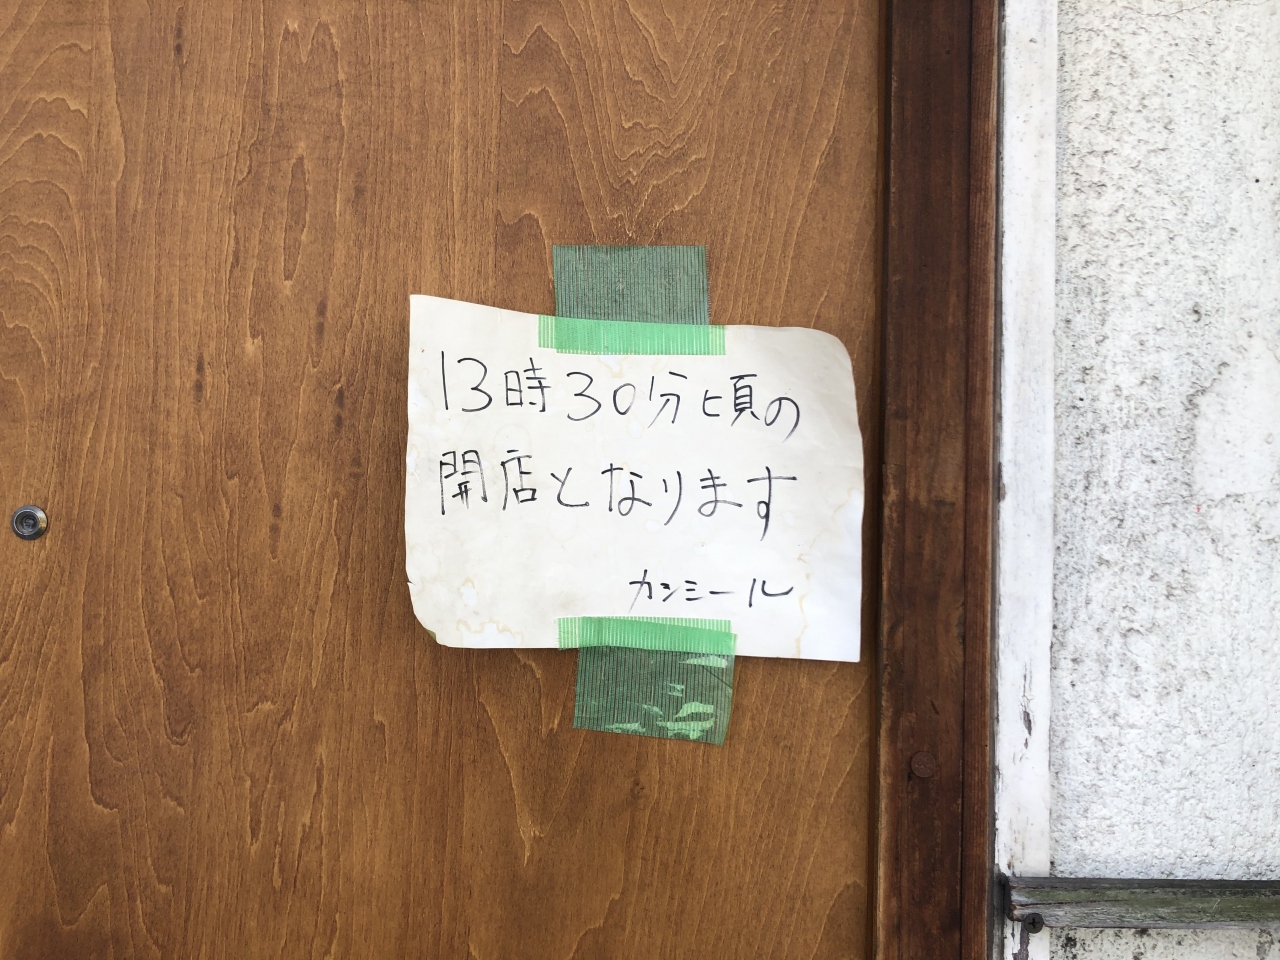 13時30分頃の
開店となります
カシミール